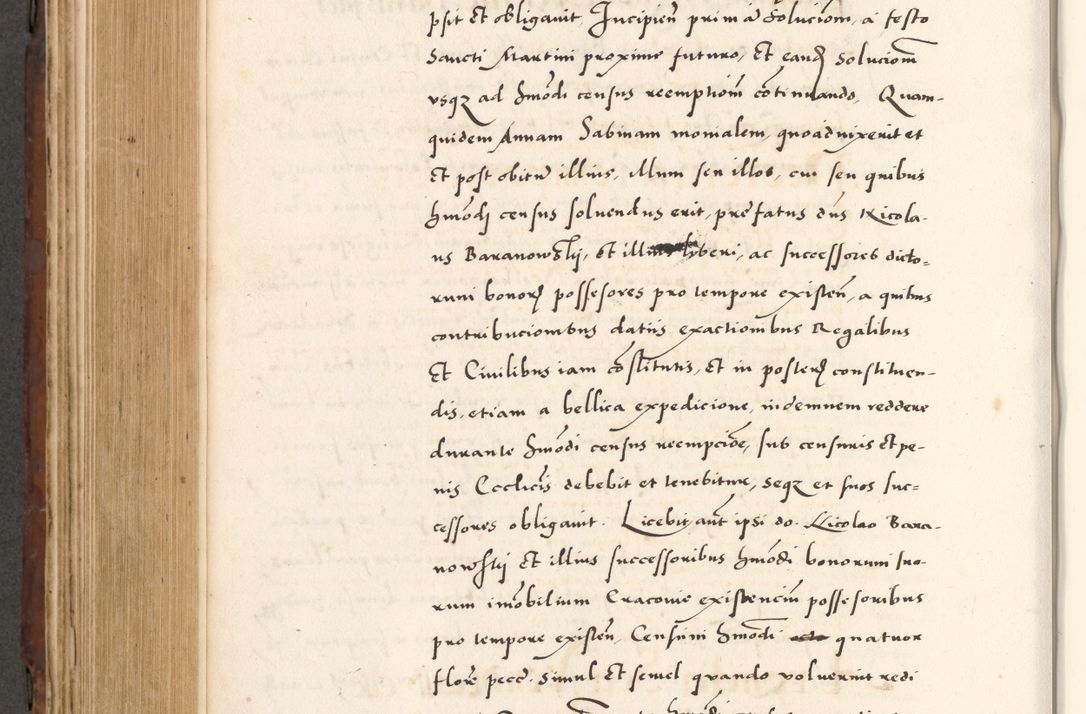 psit et obligauit, Incipien̄ primā Solucion̄, a festo
Sancti Martini proxime futuro, Et eand̄ Solucion̄
vsqꝫ ad hmōdi census reemption̄ cōtinuando, Quam-
quidem Annam Sabinam monialem, quoad uixerit et
Et post obitū illius, illum seu illos, cui seu quibus
hmōdi census soluendus erit, prefatus dn̄s Nicola-
us Baranowskij, et illius lyberi, ac successores dicto-
rum bonorꝝ possesores pro tempore existen̄, a quibus
contribucionibus datiis exactionibus Regalibus
Et Ciuilibus iam cōstitutis, Et in posterꝝ constituen-
dis, etiam a bellica expedicione, indemnem reddere
durante hmōdi census reempciōe, sub censuris et pe-
nis Eccl̄icis debebit et tenebitur, seqꝫ et suos suc-
cessores obligauit. Licebit aūt ipsi do. Nicolao Bara-
nowskij Et illius successoribus hmōdi bonorum suo-
rum imōbilium Cracouie existenciū possesoribus
pro tempore existen̄, Censum hmōdi quatuor
flore pecē. simul Et semel quando voluerint redi